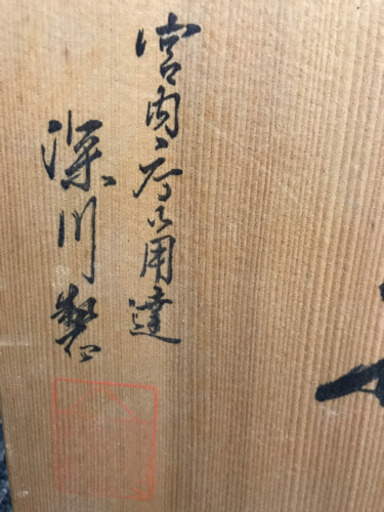 宮内庁御用達
深川製